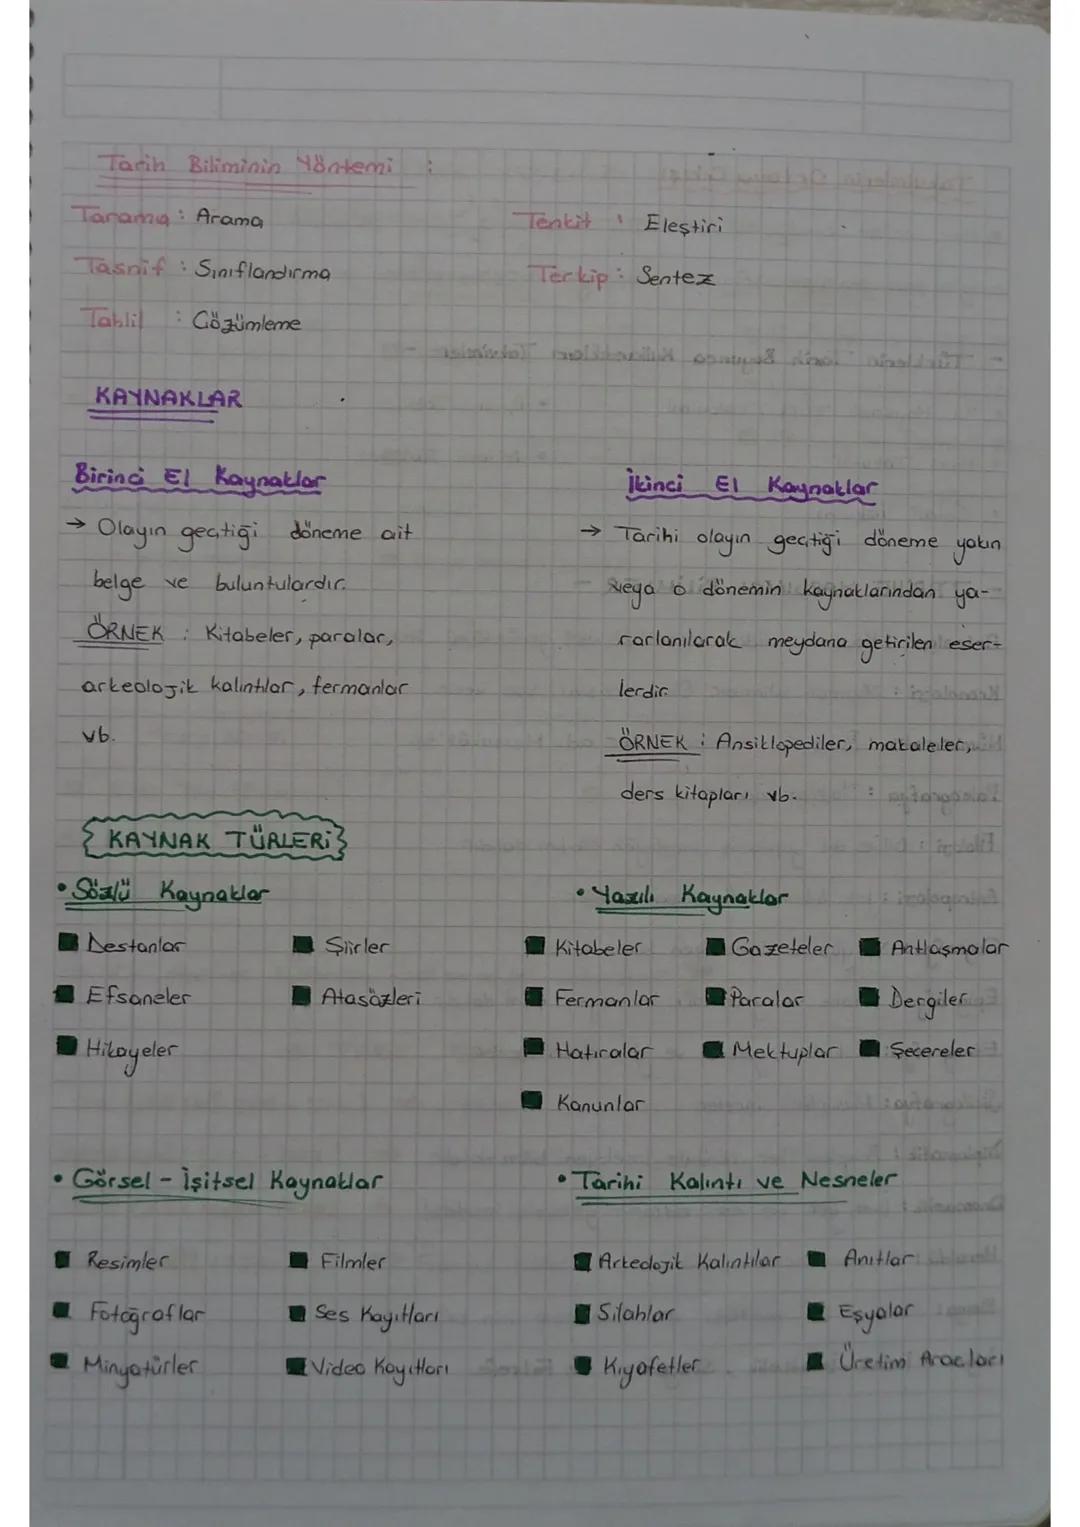 Tarih Biliminin Yöntemi :
Tarama : Arama
Tenkit : Eleştiri
Tasnif : Sınıflandırma
Terkip : Sentez
Tahlil : Çözümleme
KAYNAKLAR
Birinci El Kaynaklar
→ Olayın geçtiği döneme ait
belge ve buluntulardır.
ÖRNEK : Kitabeler, paralar,
arkeolojik kalıntılar, fermanlar
vb.
İkinci El Kaynaklar
→ Tarihi olayın geçtiği döneme yakın
veya o dönemin kaynaklarından ya-
rarlanılarak meydana getirilen eser-
lerdir.
ÖRNEK : Ansiklopediler, makaleler,
ders kitapları vb.
KAYNAK TÜRLERİ
• Sözlü Kaynaklar
Destanlar Şiirler
Efsaneler Atasözleri
Hikayeler
• Yazılı Kaynaklar
Kitabeler Gazeteler Antlaşmalar
Fermanlar Paralar Dergiler
Hatıralar Mektuplar Şecereler
Kanunlar
• Görsel - İşitsel Kaynaklar
Resimler Filmler
Fotoğraflar Ses Kayıtları
Minyatürler Video Kayıtları
• Tarihi Kalıntı ve Nesneler
Arkeolojik Kalıntılar Anıtlar
Silahlar Eşyalar
Kıyafetler Üretim Araçları